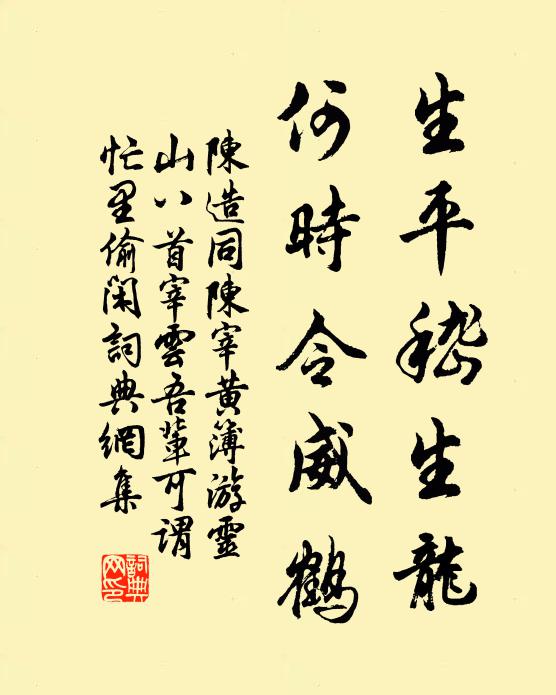 生平嵇生龍
何時令威鶴
陳造同陳宰黃簿游靈
山八首宰雲吾輩可謂
忙里偷閑詞典網集
詞典網印